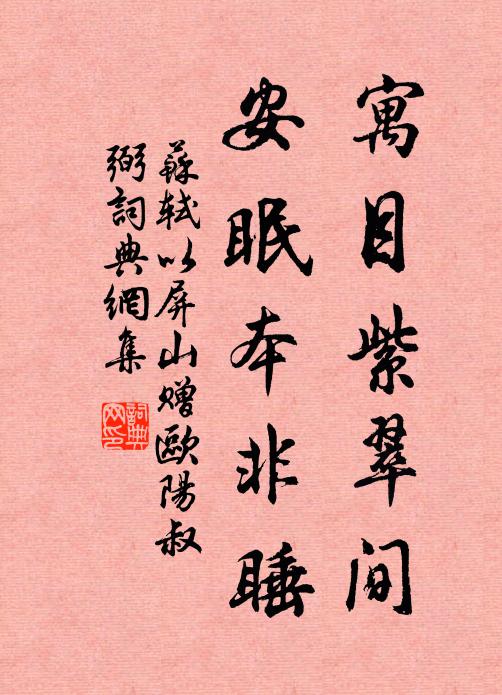 寓目紫翠间
安眠本非睡
蘇軾以屏山贈歐陽叔
弼詞典網集
詞典
网印